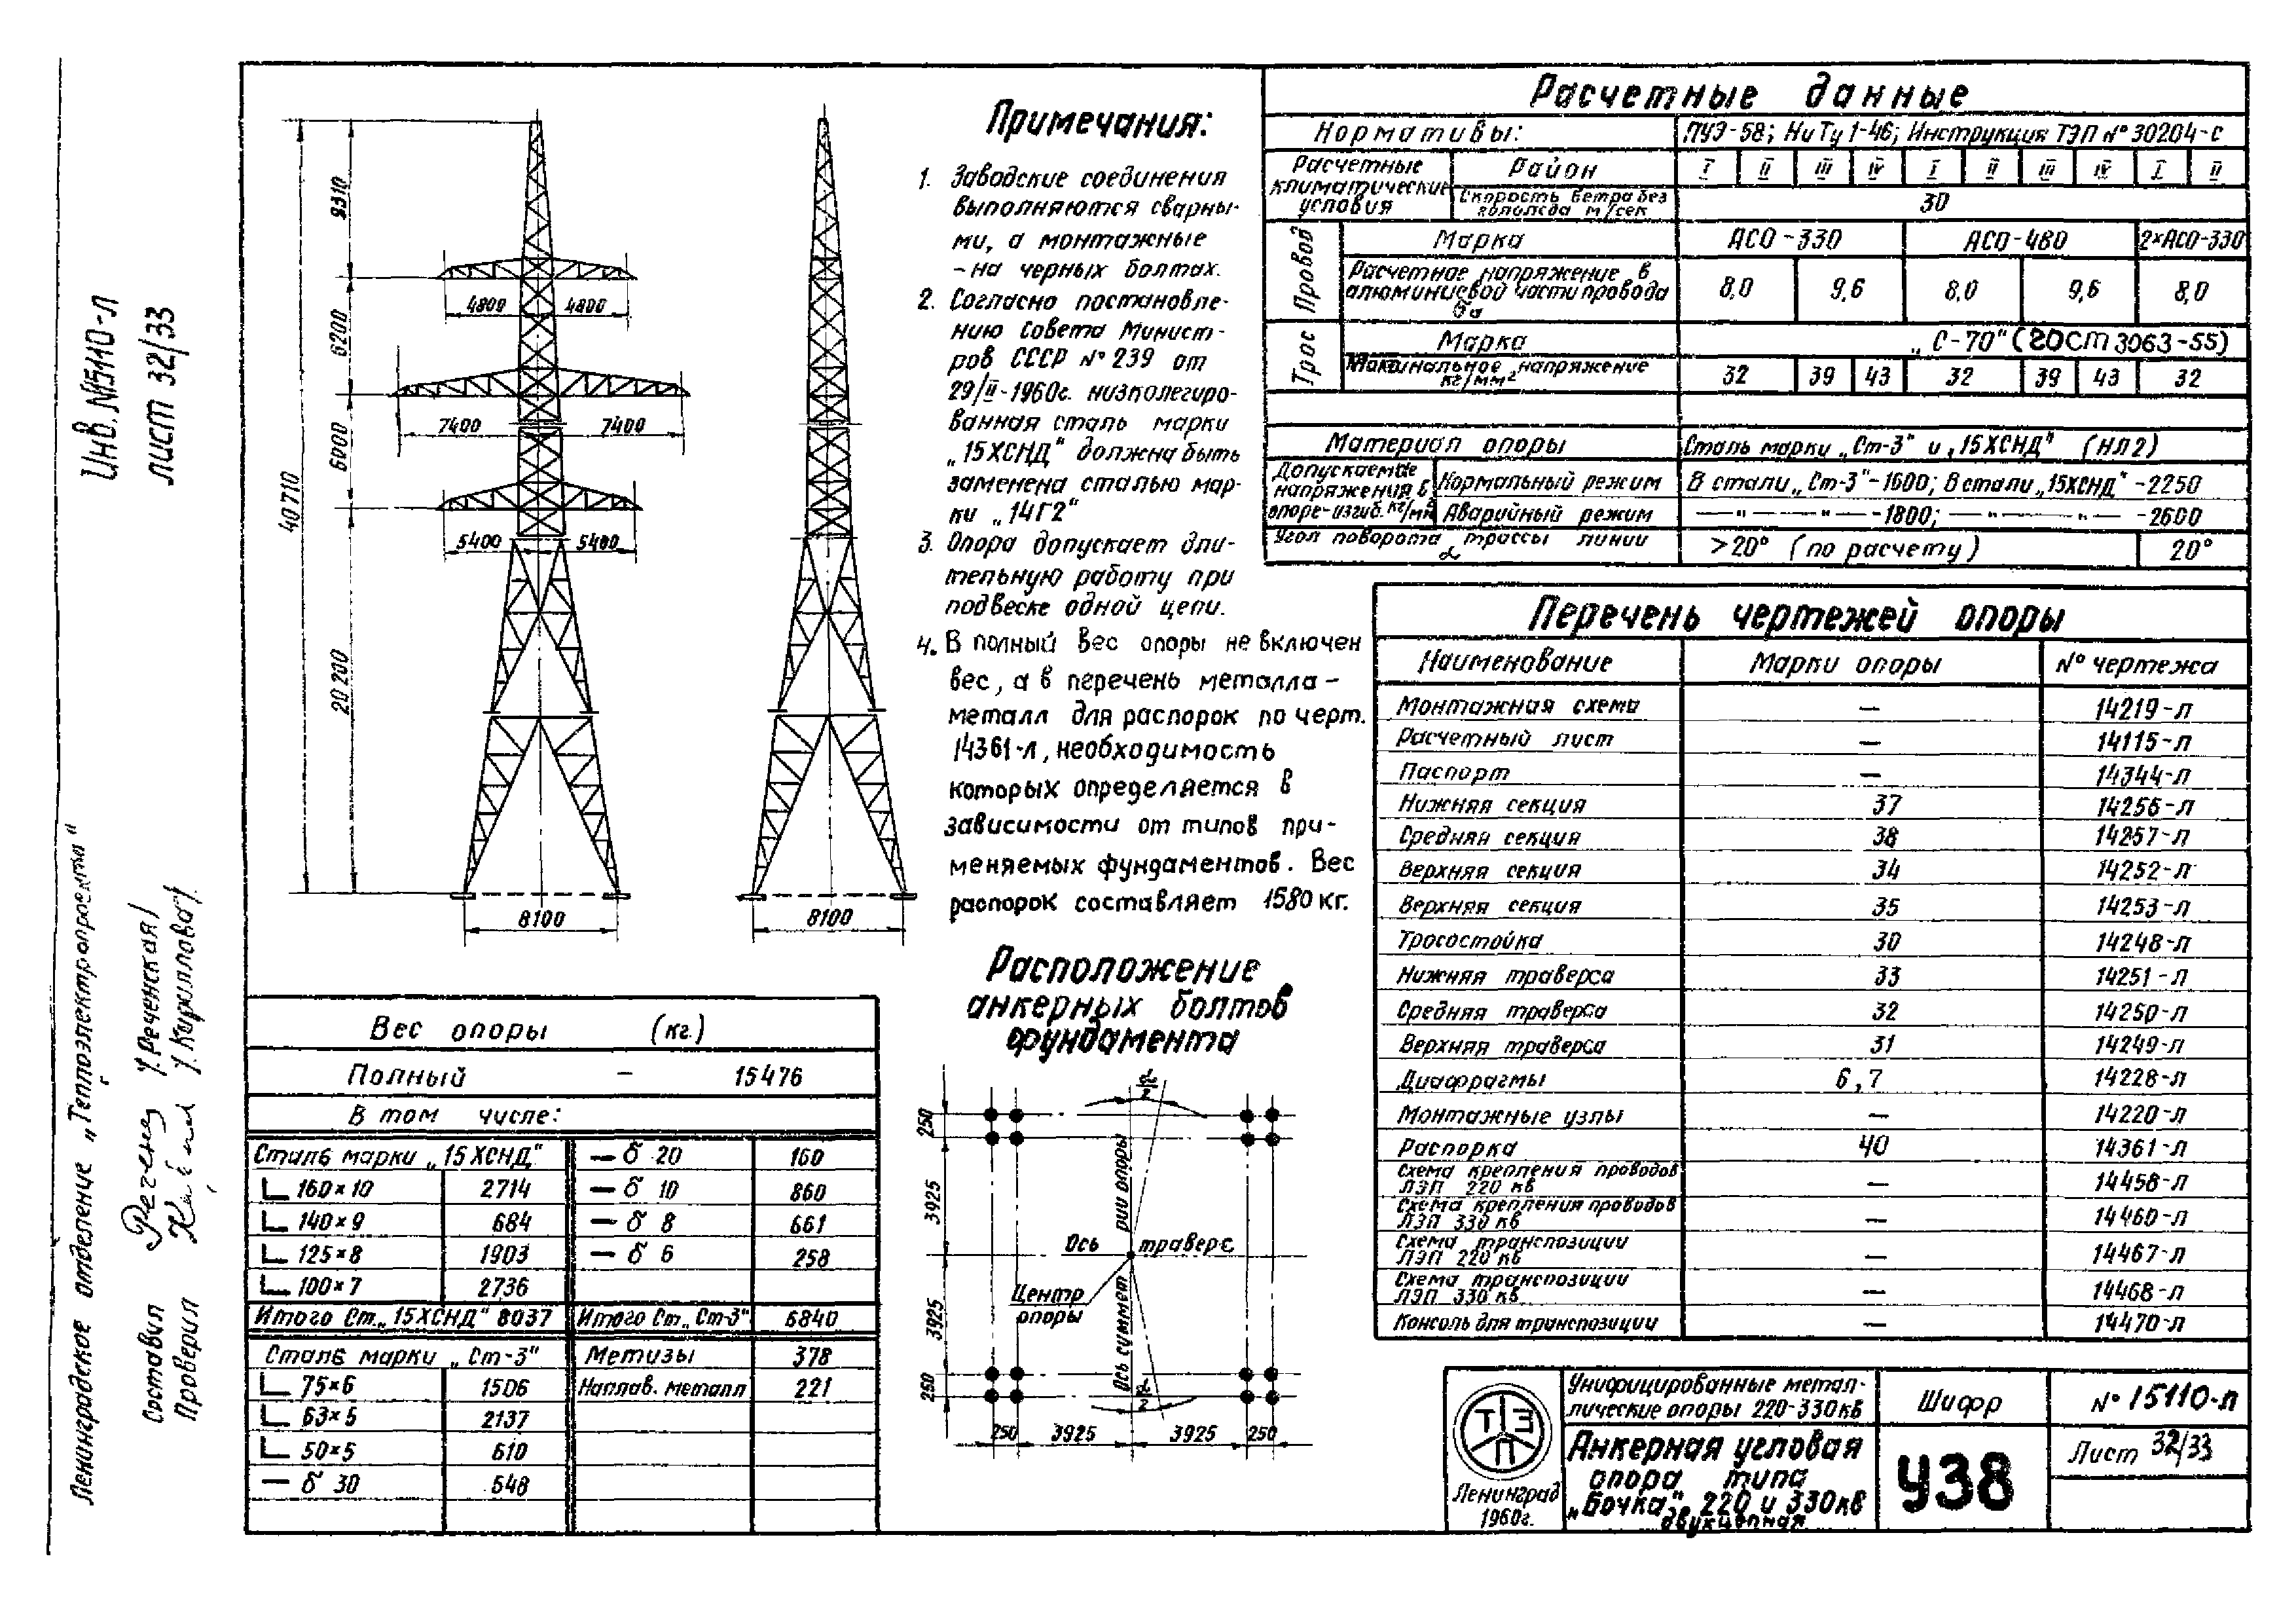 Инв. №15110-л
лист 32/33
Ленинградское отделение „Теплоэлектропроекта"
Составил /Реченская/
Проверил /Кириллова/
9310
6200
6000
40710
20 200
4800 4800
7400 7400
5400 5400
8100
8100
Примечания:
1. Заводские соединения
выполняются сварны-
ми, а монтажные
-на черных болтах.
2. Согласно постановле-
нию Совета Минист-
ров СССР №239 от
29/II-1960г. низколегиро-
ванная сталь марки
„15ХСНД" должна быть
заменена сталью мар-
ки „14Г2"
3. Опора допускает дли-
тельную работу при
подвеске одной цепи.
4. В полный вес опоры не включен
вес, а в перечень металла-
металл для распорок по черт.
14361-л, необходимость
которых определяется в
зависимости от типов при-
меняемых фундаментов. Вес
распорок составляет 1580 кг.
Расчетные данные
Нормативы: ПУЭ-58; НиТу 1-46; Инструкция ТЭП №30204-с
Расчетные климатические условия
Район I II III IV I II III IV I II
Скорость ветра без гололеда м/сек 30
Провод
Марка АСО-330 АСО-480 2×АСО-330
Расчетное напряжение в
алюминиевой части провода
σа 8,0 9,6 8,0 9,6 8,0
Трос
Марка „С-70" (ГОСТ 3063-55)
Максимальное напряжение
кг/мм² 32 39 43 32 39 43 32
Материал опоры Сталь марки „Ст-3" и „15ХСНД" (НЛ2)
Допускаемые
напряжения в
опоре-изгиб. кг/мм²
Нормальный режим В стали „Ст-3"-1600; В стали „15ХСНД"-2250
Аварийный режим — " — " — -1800; — " — " — -2600
Угол поворота трассы линии
α >20° (по расчету) 20°
Перечень чертежей опоры
Наименование Марки опоры № чертежа
Монтажная схема — 14219-л
Расчетный лист — 14115-л
Паспорт — 14344-л
Нижняя секция 37 14256-л
Средняя секция 38 14257-л
Верхняя секция 34 14252-л
Верхняя секция 35 14253-л
Тросостойка 30 14248-л
Нижняя траверса 33 14251-л
Средняя траверса 32 14250-л
Верхняя траверса 31 14249-л
Диафрагмы 6,7 14228-л
Монтажные узлы — 14220-л
Распорка 40 14361-л
Схема крепления проводов
ЛЭП 220 кв — 14458-л
Схема крепления проводов
ЛЭП 330 кв — 14460-л
Схема транспозиции
ЛЭП 220 кв — 14467-л
Схема транспозиции
ЛЭП 330 кв — 14468-л
Консоль для транспозиции — 14470-л
Вес опоры (кг.)
Полный - 15476
В том числе:
Сталь марки „15ХСНД" — δ 20 160
∟ 160×10 2714 — δ 10 860
∟ 140×9 684 — δ 8 661
∟ 125×8 1903 — δ 6 258
∟ 100×7 2736
Итого Ст. „15ХСНД" 8037 Итого Ст. „Ст-3" 6840
Сталь марки „Ст-3" Метизы 378
∟ 75×6 1506 Наплав. металл 221
∟ 63×5 2137
∟ 50×5 610
— δ 30 548
Расположение
анкерных болтов
фундамента
α/2
250
3925
3925
250
Ось симметрии опоры
Ось траверс
Центр
опоры
α/2
250 3925 3925 250
ТЭП
Ленинград
1960г.
Унифицированные метал-
лические опоры 220-330кв
Анкерная угловая
опора типа
„Бочка", 220 и 330кв
двухцепная
Шифр
У38
№15110-л
Лист 32/33